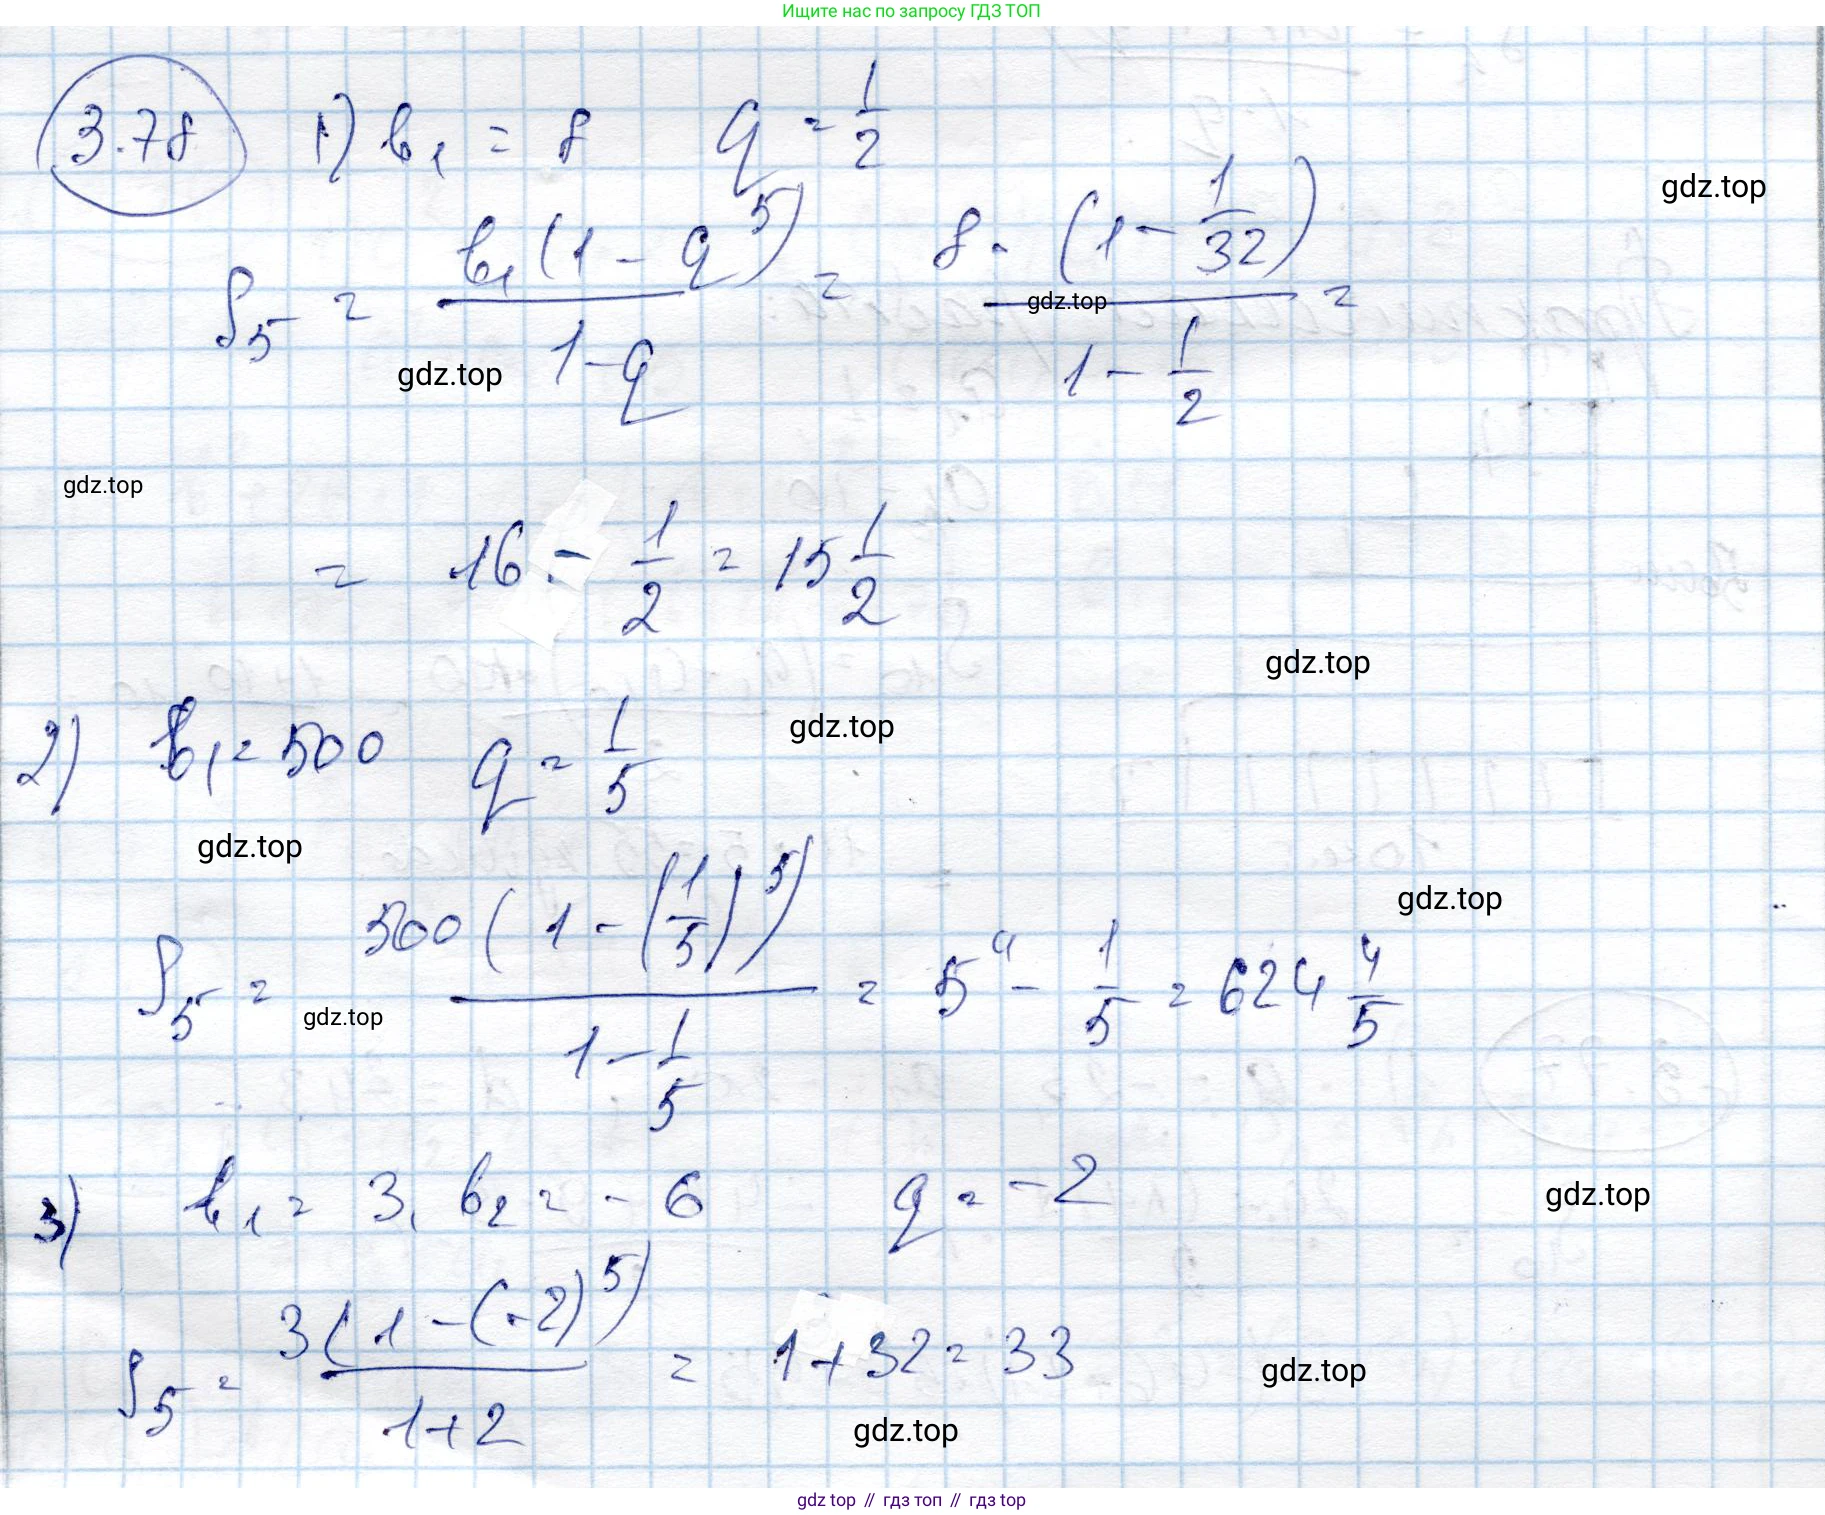 Ищите нас по запросу ГДЗ ТОП
3.78 1) b₁ = 8 q = 1/2
gdz.top
S₅ = b₁(1 - q⁵)/(1 - q) = 8 · (1 - 1/32)/(1 - 1/2) =
gdz.top
gdz.top
gdz.top
= 16 - 1/2 = 15 1/2
gdz.top
2) b₁ = 500 q = 1/5
gdz.top
gdz.top
gdz.top
S₅ = 500(1 - (1/5)⁵)/(1 - 1/5) = 5⁴ - 1/5 = 624 4/5
gdz.top
3) b₁ = 3, b₂ = -6 q = -2
gdz.top
S₅ = 3(1 - (-2)⁵)/(1+2) = 1+32 = 33
gdz.top
gdz.top
gdz top // гдз топ // gdz top